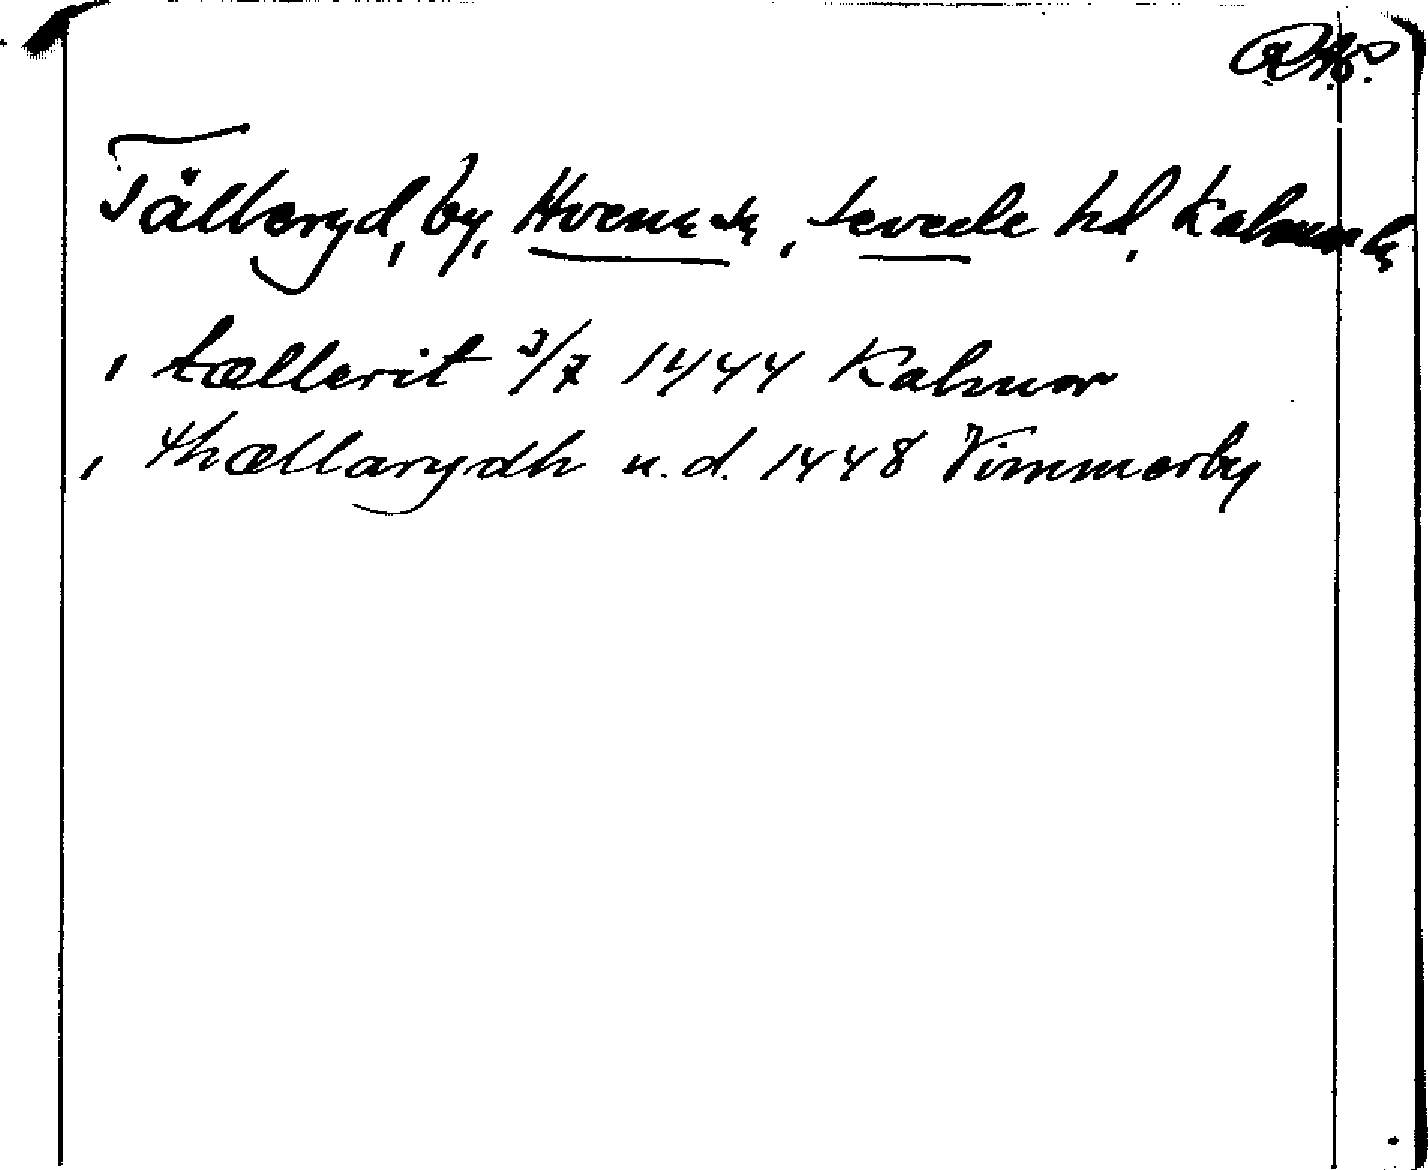 Tälleryd, by, Hvena sn, Sevede hd, Kalmar l
, tællerit 3/7 1444 Kalmar
, thællarydh u.d. 1448 Vimmerby